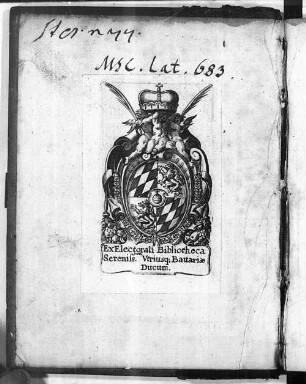 MSC. Lat. 683.
Ex Electorali Bibliotheca
Sereniss. Vtriusq; Bauariæ
Ducum.